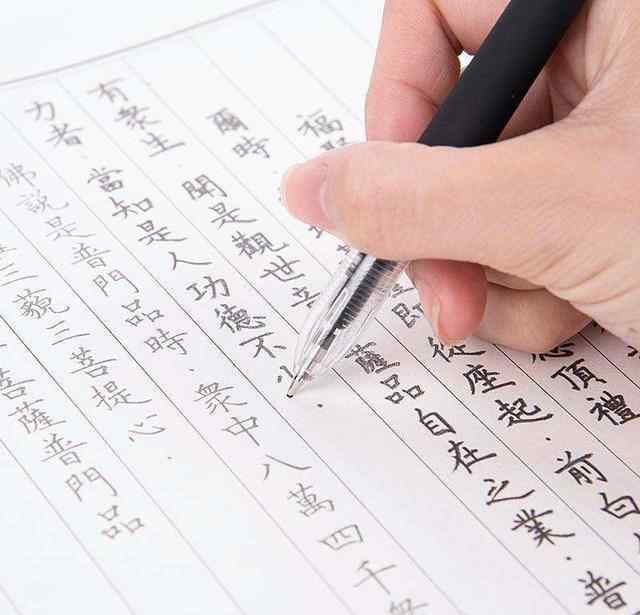 福 頂禮．
爾時 即從座起．前白
有眾生聞是觀世音 薩品自在之業．普
力者．當知是人功德不
佛說是普門品時．眾中八萬四千眾
三藐三菩提心．
菩薩普門品